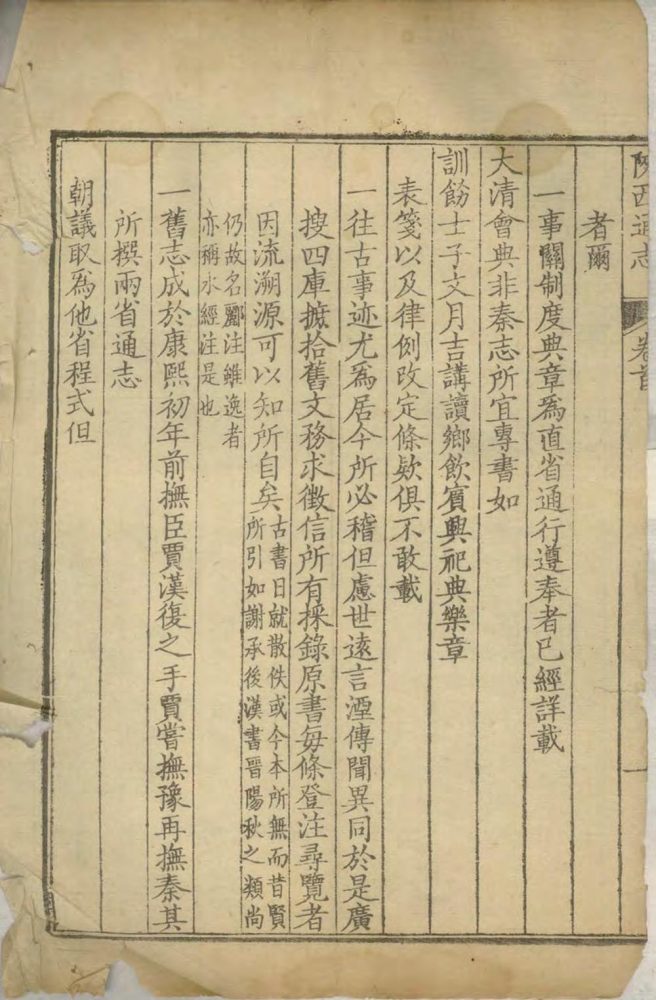 陝西通志
卷首
一
者爾
一事關制度典章爲直省通行遵奉者已經詳載
大清會典非秦志所宜專書如
訓飭士子文月吉講讀鄉飲賓興祀典樂章
表箋以及律例改定條欵俱不敢載
一往古事迹尤爲居今所必稽但慮世遠言湮傳聞異同於是廣
搜四庫摭拾舊文務求徵信所有採錄原書每條登注尋覽者
因流溯源可以知所自矣古書日就散佚或今本所無而昔賢
所引如謝承後漢書晉陽秋之類尚
仍故名酈注雖逸者
亦稱水經注是也
一舊志成於康熙初年前撫臣賈漢復之手賈嘗撫豫再撫秦其
所撰兩省通志
朝議取爲他省程式但